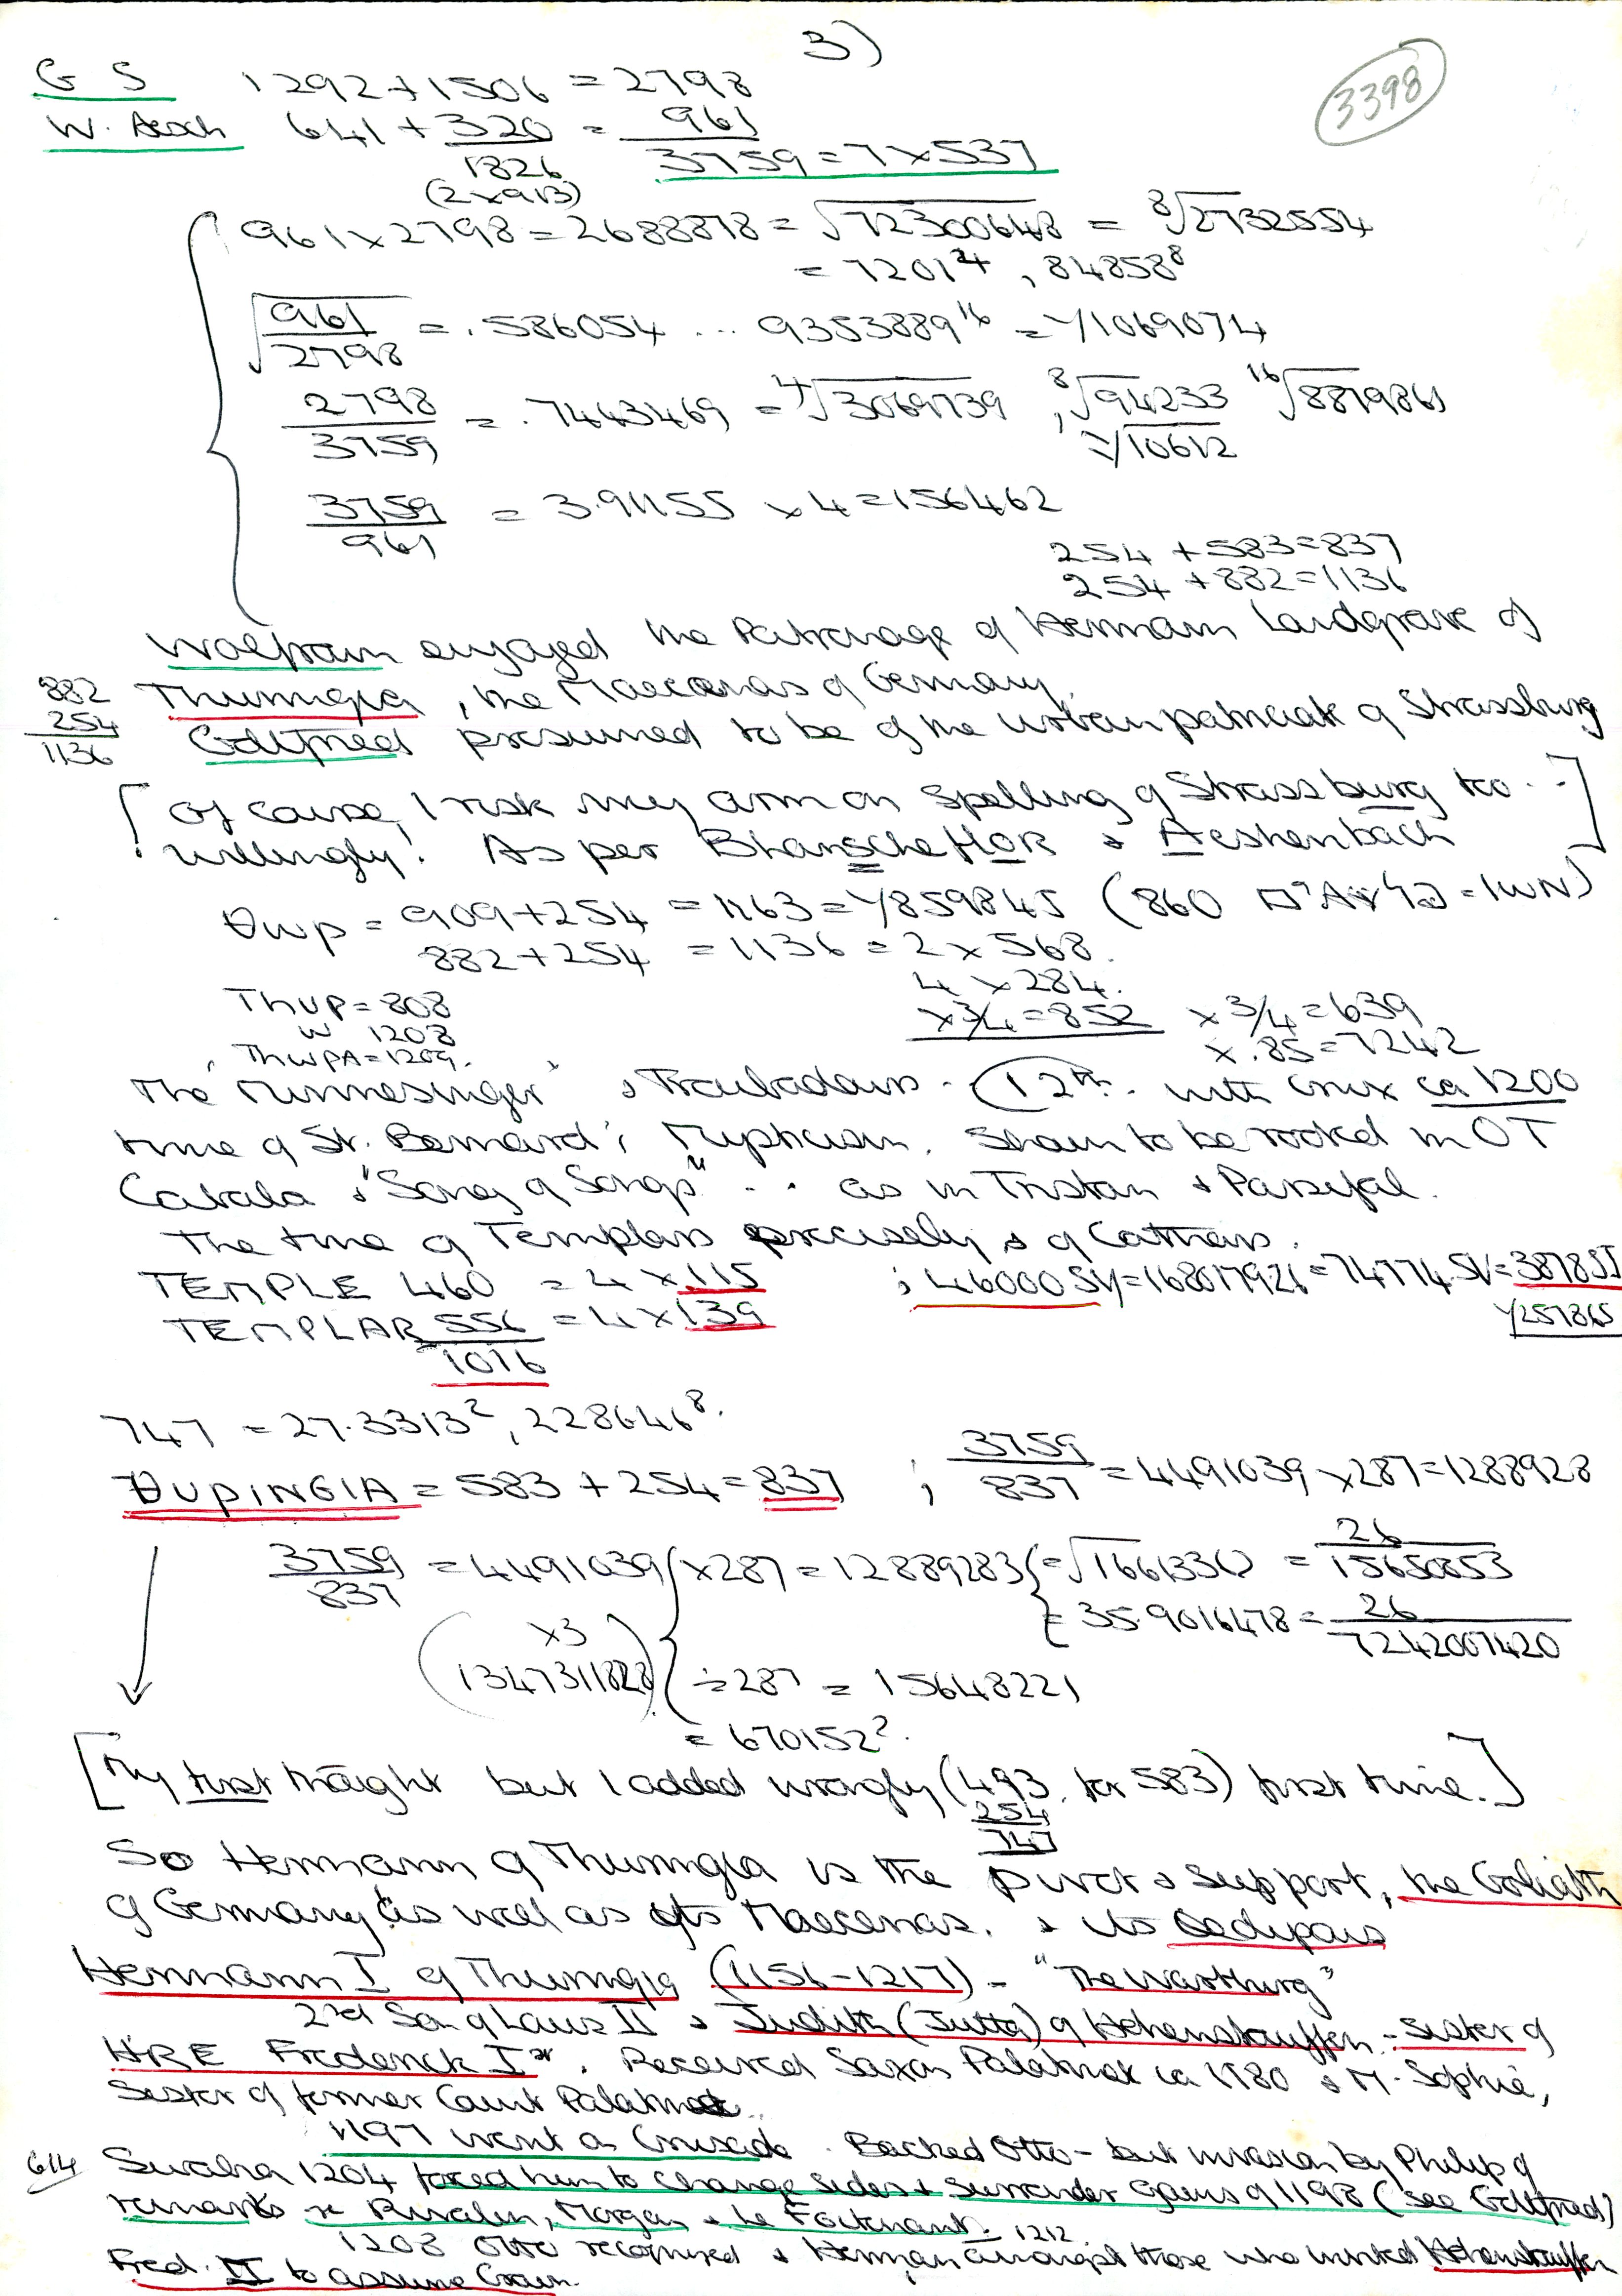 3)
3398
G S 1292+1506 = 2798
W. Aesch 641 + 320 = 961
1826 3759 = 7 x 537
(2x913)
961 x 2798 = 2688878 = √72300648 = 8√2732554
= 7201⁴, 84858⁸
√961/2798 = .586054 ... 9353889¹⁶ = Y1069074
2798/3759 = .7443469 = 4√3069739, 8√94233 16√8879861
Y10612
3759/961 = 3.91155 x 4 = 156462
254 + 583 = 837
254 + 882 = 1136
Wolfram enjoyed the Patronage of Hermann Landgrave of
882 Thuringia, the Maecenas of Germany.
254 Gottfried presumed to be of the urban patriciate of Strassburg
1136
[Of course, I risk my arm on spelling of Strassburg too ..
willingly! As per BlanscheflOR & Aeshenbach]
ϴwp = 909+254 = 1163 = Y859845 (860
882+254 = 1136 = 2 x 568.
4 x 284.
Thup = 808 x 3/4 = 852 x 3/4 = 639
w 1208 x .85 = 7242
ThwpA = 1209.
The "Minnesinger" & Troubadours - 12th. with crux ca 1200
time of St. Bernard's Mysticism. Seem to be rooted in OT
Cabala & "Song of Songs" .. as in Tristan & Parsifal.
The time of Templars precisely & of Cathars.
TEMPLE 460 = 4 x 115 ; 46000 SY = 168017921 = 74774.SV = 3878SI
TEMPLAR 556 = 4 x 139 Y257865
1016
747 = 27.3313², 228646⁸.
ϴUPINGIA = 583 + 254 = 837 ; 3759/837 = 4491039 x 287 = 1288928
3759/837 = 4491039 { x287 = 12889283 { = √1661330 = 26/15650853
= 35.9016478 = 26/7242007420
(x3
134731182)
÷ 287 = 15648221
= 670152².
[My first thought but I added wrongly (493 for 583) first time.]
254
747
So Hermann of Thuringia is the pivot & support, the Goliath
of Germany as well as its Maecenas. & its Oedipous
Hermann I of Thuringia (1156-1217) - "The Wartburg"
2nd Son of Louis II & Judith (Jutta) of Hohenstauffen - sister of
HRE Frederick I*. Received Saxon Palatinate ca 1180 & M. Sophie,
Sister of former Count Palatine.
1197 went on Crusade. Backed Otto - but invasion by Philip of
614 Swabia 1204 forced him to change sides & surrender gains of 1198 (see Gottfried)
remarks re Rivalin, Morgan & le Foitenant.
1208 Otto recognised & 1212 Herman amongst those who invited Hohenstauffen
Fred. II to assume Crown.